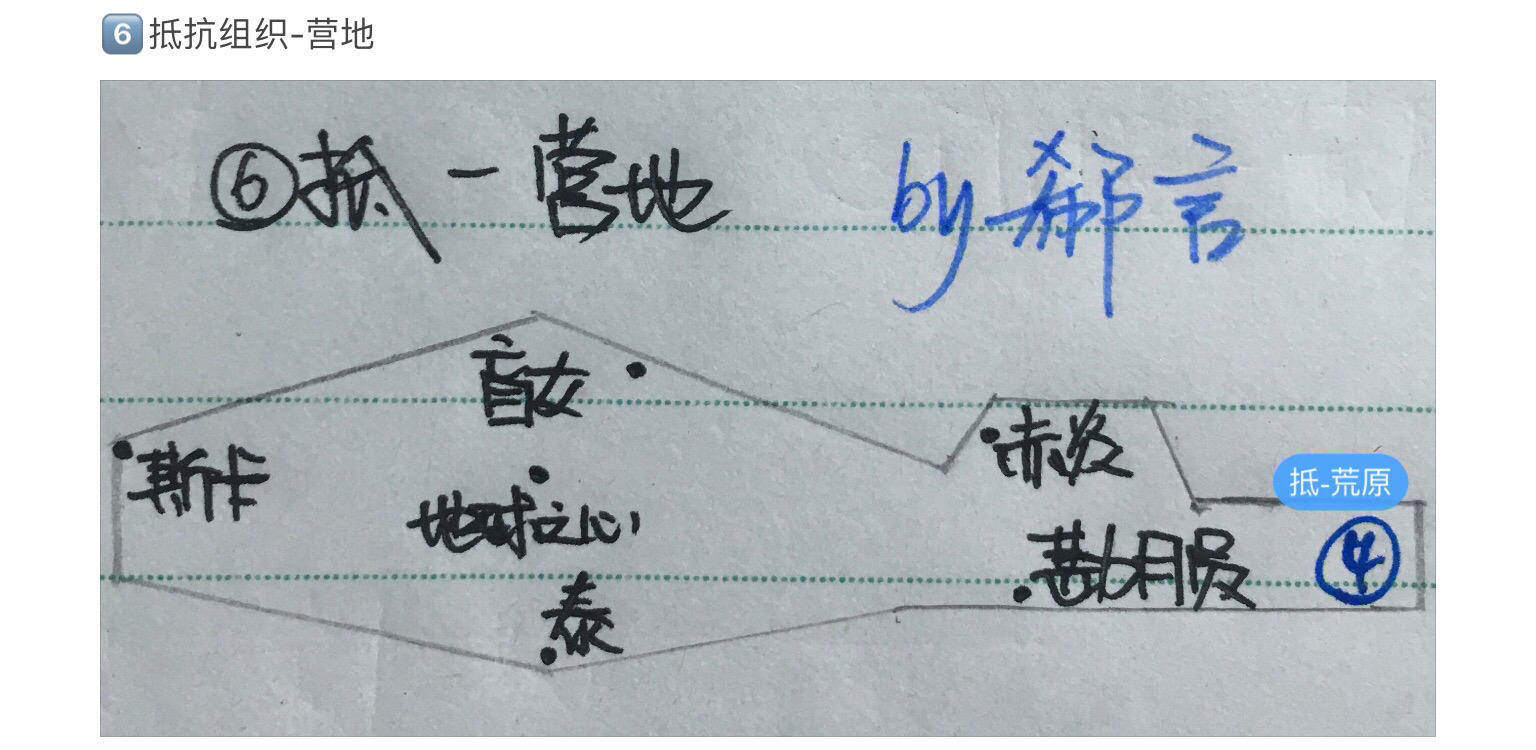 6 抵抗组织-营地
⑥抵-营地 by 郗言
盲女
斯卡
赤发
抵-荒原
地球之心
勘月员
④
泰